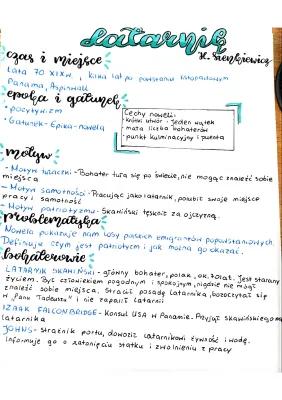 Latarnik
H. Sienkiewicz
czas i miejsce
Lata 70 XIXw, kilka lat po powstaniu listopadowym
Panama, Aspinwall
epoka i gatunek
- pozytywizm
- Gatunek-Epika-nowela
Cechy noweli:
krótki utwór - jeden wątek
mała liczba bohaterów
punkt kulminacyjny i puenta
motyw
- Motyw tułaczki - Bohater tuła się po świecie, nie mogąc znaleźć sobie
miejsca
- Motyw samotności - Pracując jako latarnik, polubił swoje miejsce
pracy i samotność
- Motyw patriotyzmu - Skawiński tęsknił za ojczyzną.
problematyka
Nowela pokazuje nam losy polskich emigrantów popowstaniowych.
Definiuje czym jest patriotyzm i jak można go okazać.
bohaterowie
LATARNIK SKAWIŃSKI - główny bohater, polak, ok. 70 lat. Jest starany
życiem. Był człowiekiem pogodnym i spokojnym, nigdzie nie mógł
znaleźć sobie miejsca. Stracił posadę latarnika, bo zaczytał się
w "Panu Tadeuszu" i nie zapalił latarni
IZAAK FALCONBRIDGE - Konsul USA w Panamie. Przyjął Skawińskiego na
latarnika
JOHNS - strażnik portu, dowoził latarnikowi żywność i wodę.
Informuje go o zatonięciu statku i zwolnieniu z pracy